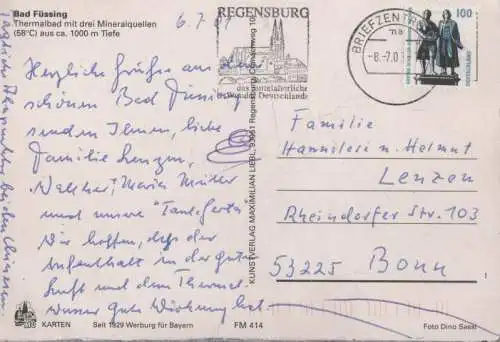 Bad Füssing
Thermalbad mit drei Mineralquellen
(58°C) aus ca. 1000 m Tiefe
6.7.01
Herzliche Grüße aus dem
schönen Bad Füssing
senden Ihnen, liebe
Familie Lenzen,
Maria Müller
und unsere "Tante
Wir hoffen, daß der
Aufenthalt in der guten
Luft und dem Thermal-
wasser gute Wirkung hat.
Tägliche bei den
REGENSBURG
das mittelalterliche
Wunder Deutschlands
BRIEFZENTRUM
-8.-7.0
100
DEUTSCHLAND
Familie
Hannelore u. Helmut
Lenzen
Rheindorfer Str. 103
53225 Bonn
KUNSTVERLAG MAXIMILIAN LIEBL, 93051 Regensburg
KARTEN
Seit 1929 Werbung für Bayern
FM 414
Foto Dino Sassi